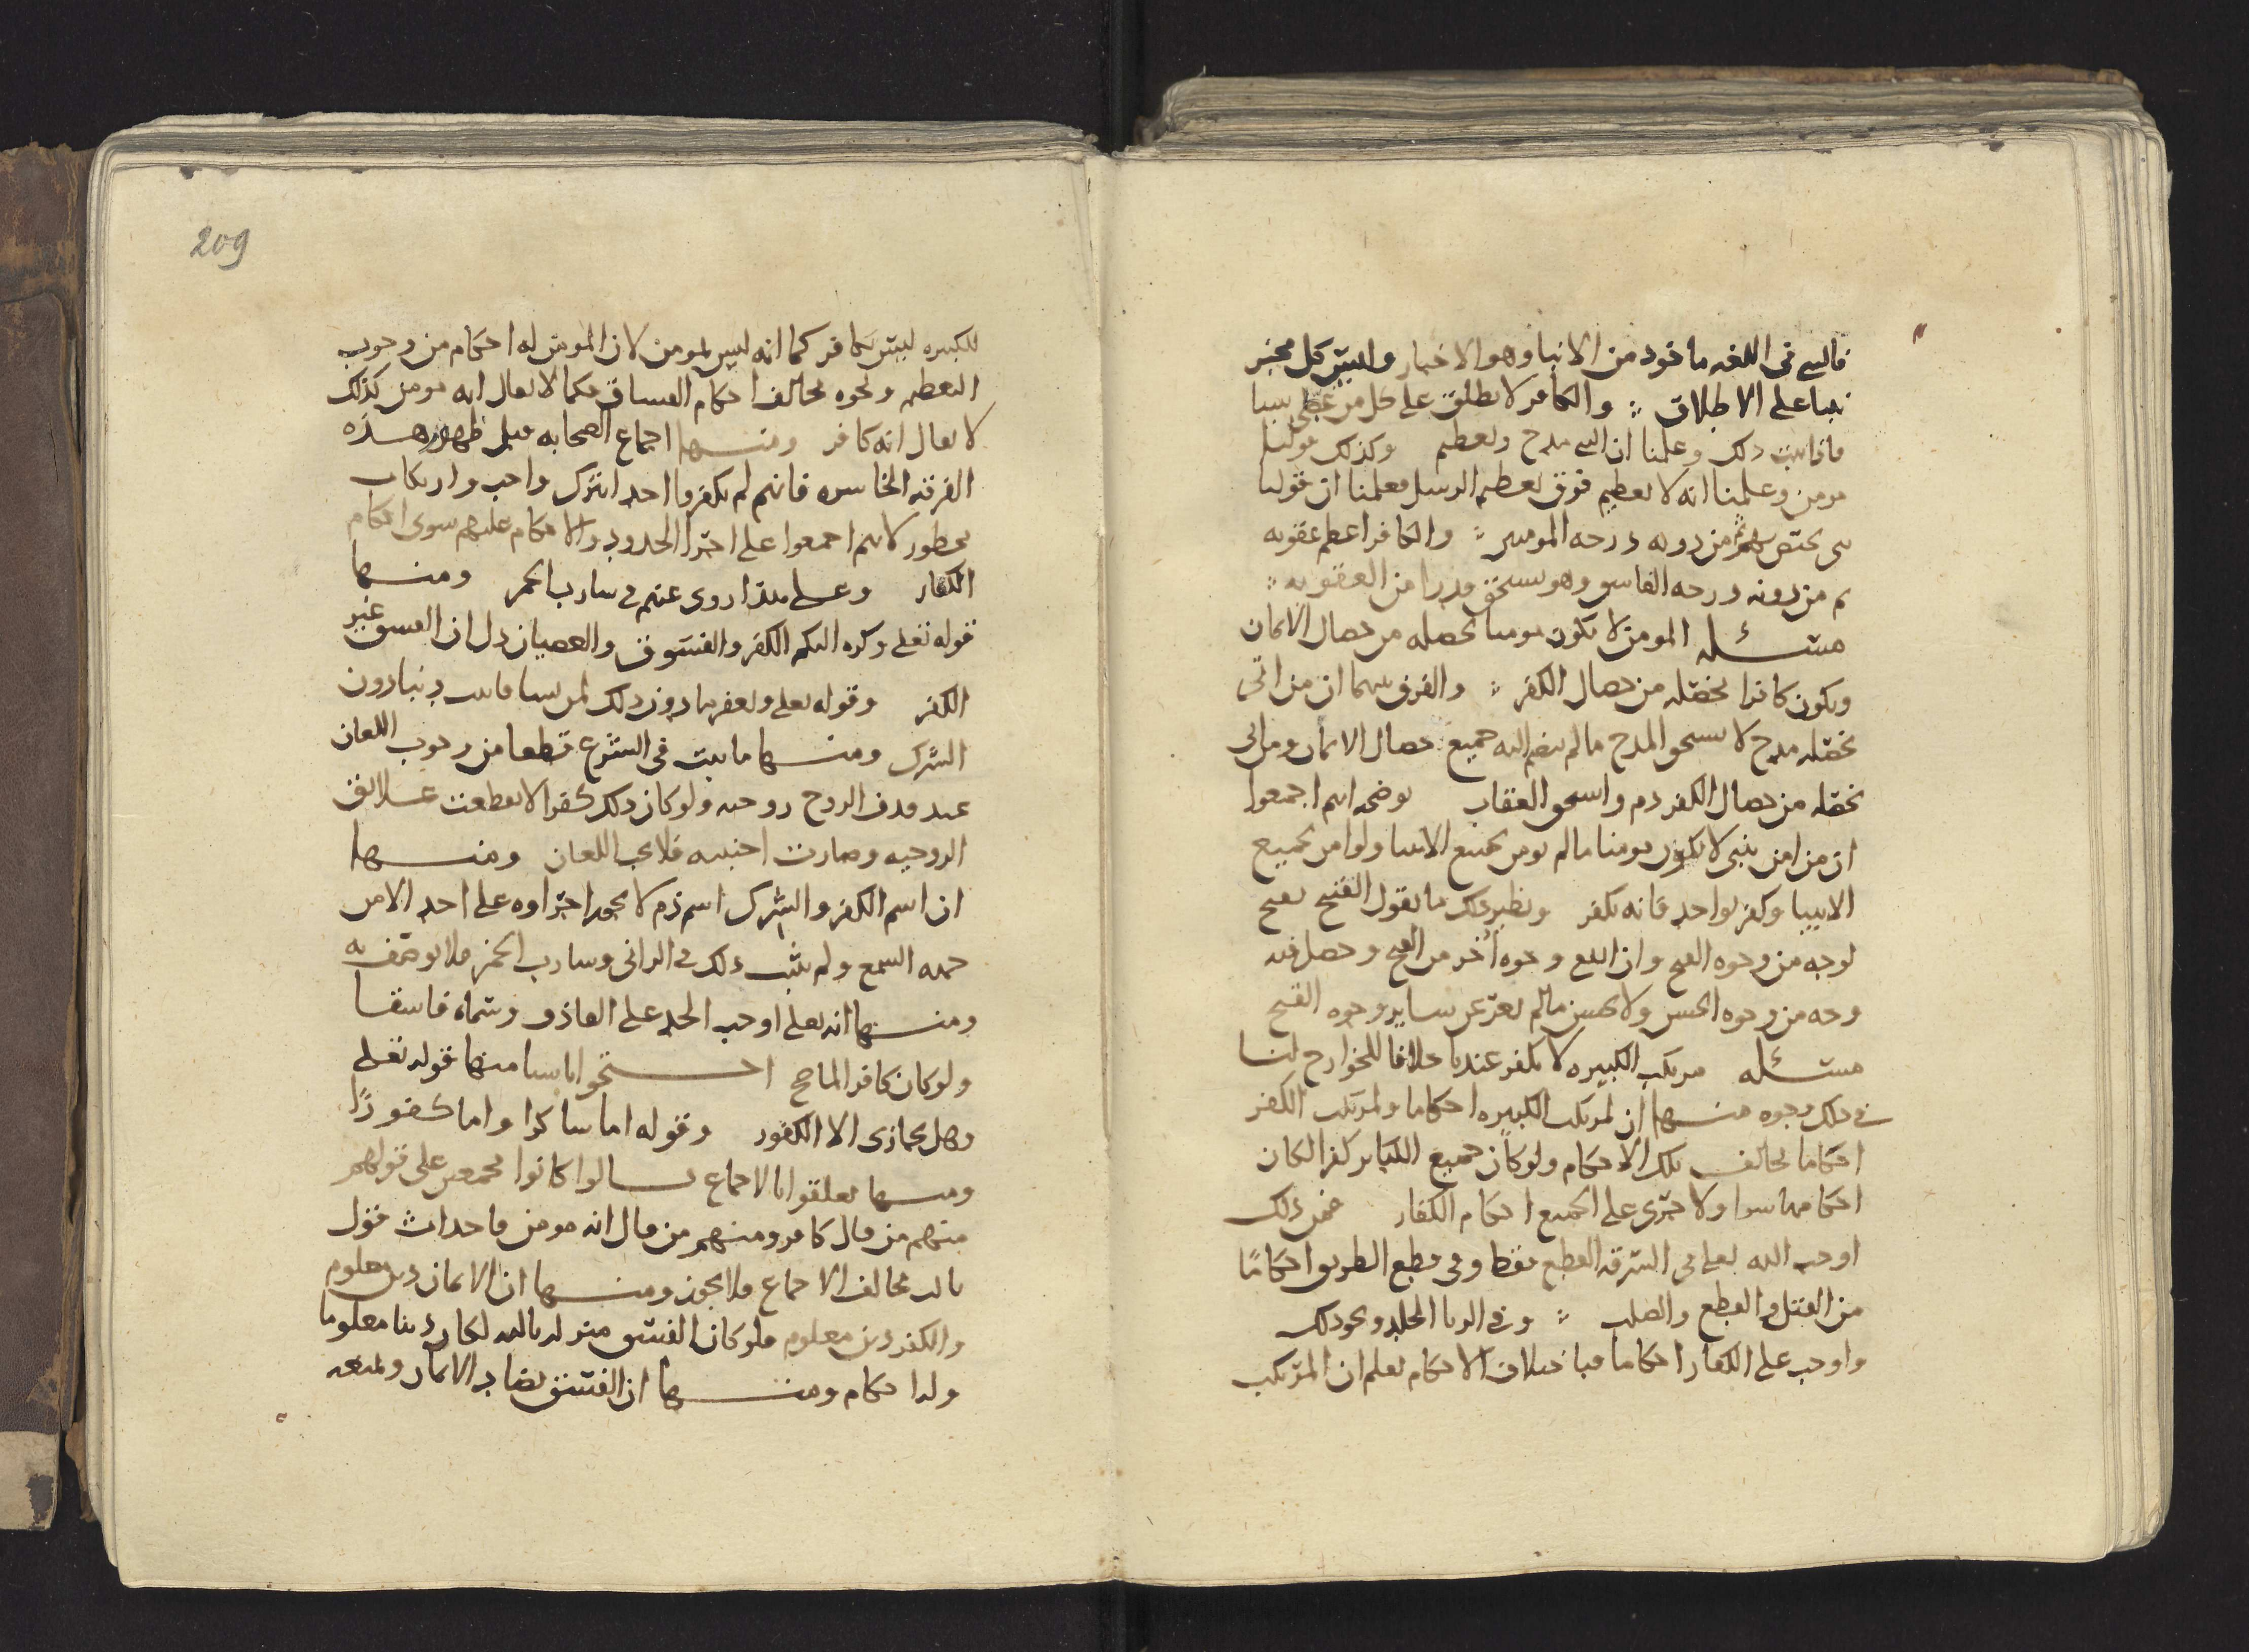 فالنبي في اللغه ماخوذ من الانبا وهو الاخبار وليس كل مخبر
نبيا على الاطلاق : والكافر لا يطلق على كل من غطى شيا
فاذا ثبت ذلك وعلمنا ان النبي مدح وتعظيم وكذلك قولنا
مومن وعلمنا انه لا تعظيم فوق تعظيم الرسل فعلمنا ان قولنا
نبي يختص بهم ثم من دونه درجه المومنين : والكافر اعظم عقوبه
ثم من دونه درجه الفاسق وهو يستحق قدرا من العقوبه :
مسئله المومن لا يكون مومنا بخصله من خصال الايمان
ويكون كافرا بخصله من خصال الكفر : والفرق بينهما ان من اتى
بخصله مدح لا يستحق المدح ما لم ينضم اليه جميع خصال الايمان ومن اتى
بخصله من خصال الكفر ذم واستحق العقاب يوضحه انهم اجمعوا
ان من امن بنبي لا يكون مومنا ما لم يومن بجميع الانبيا ولو امن بجميع
الانبيا وكفر بواحد فانه يكفر ونظير ذلك ما نقول القبيح يقبح
لوجه من وجوه القبح وان انتفى وجوه أخر من القبح وحصل فيه
وجه من وجوه الحسن ولا يحسن ما لم يعر عن ساير وجوه القبح
مسئله مرتكب الكبيره لا يكفر عندنا خلافا للخوارج لنا
في ذلك وجوه منها ان لمرتكب الكبيره احكاما ولمرتكب الكفر
احكاما يخالف تلك الاحكام ولو كان جميع الكباير كفرا لكان
احكامها سوا ولاجرى على الجميع احكام الكفار فمن ذلك
اوجب الله تعلى في السرقه القطع فقط وفي قطع الطريق احكامًا
من القتل والقطع والصلب : وفي الزنا الجلد ونحو ذلك
واوجب على الكفار احكاما فباختلاف الاحكام نعلم ان المرتكب
209
للكبيره ليس بكافر كما انه ليس بمومن لان المومن له احكام من وجوب
التعظيم ونحوه يخالف احكام الفساق فكما لا يقال انه مومن كذلك
لا يقال انه كافر ومنها اجماع الصحابه قبل ظهور هذه
الفرقه الخاسره فانهم لم يكفروا احدا بترك واجب وارتكاب
محظور لانهم اجمعوا على اجرا الحدود والاحكام عليهم سوى احكام
الكفار وعلى هذا روى عنهم في شارب الخمر ومنها
قوله تعلى وكره اليكم الكفر والفسوق والعصيان دل ان الفسق غير
الكفر وقوله تعلى ويغفر ما دون ذلك لمن يشا فاثبت ذنبا دون
الشرك ومنها ما ثبت في الشرع قطعا من وجوب اللعان
عند قذف الزوج زوجته ولو كان ذلك كفرا لانقطعت علايق
الزوجيه وصارت اجنبيه فلا يجب اللعان ومنها
ان اسم الكفر والشرك اسم ذم لا يجوز اجراوه على احد الا من
جهه السمع ولم يثبت ذلك في الزاني وشارب الخمر فلا يوصف به
ومنها انه تعلى اوجب الحد على القاذف وسماه فاسقا
ولو كان كافرا لما صح احتجوا باشيا منها قوله تعلى
وهل يجازى الا الكفور وقوله اما شاكرا واما كفورًا
ومنها تعلقوا بالاجماع قالوا كانوا مجمعين على قولهم
منهم من قال كافر ومنهم من قال انه مومن فاحداث قول
ثالث مخالف الاجماع فلا يجوز ومنها ان الايمان دين معلوم
والكفر دين معلوم فلو كان الفسق منزله ثالثه لكان دينا معلوما
وله احكام ومنها ان الفسق يضاد الايمان ويمنعه